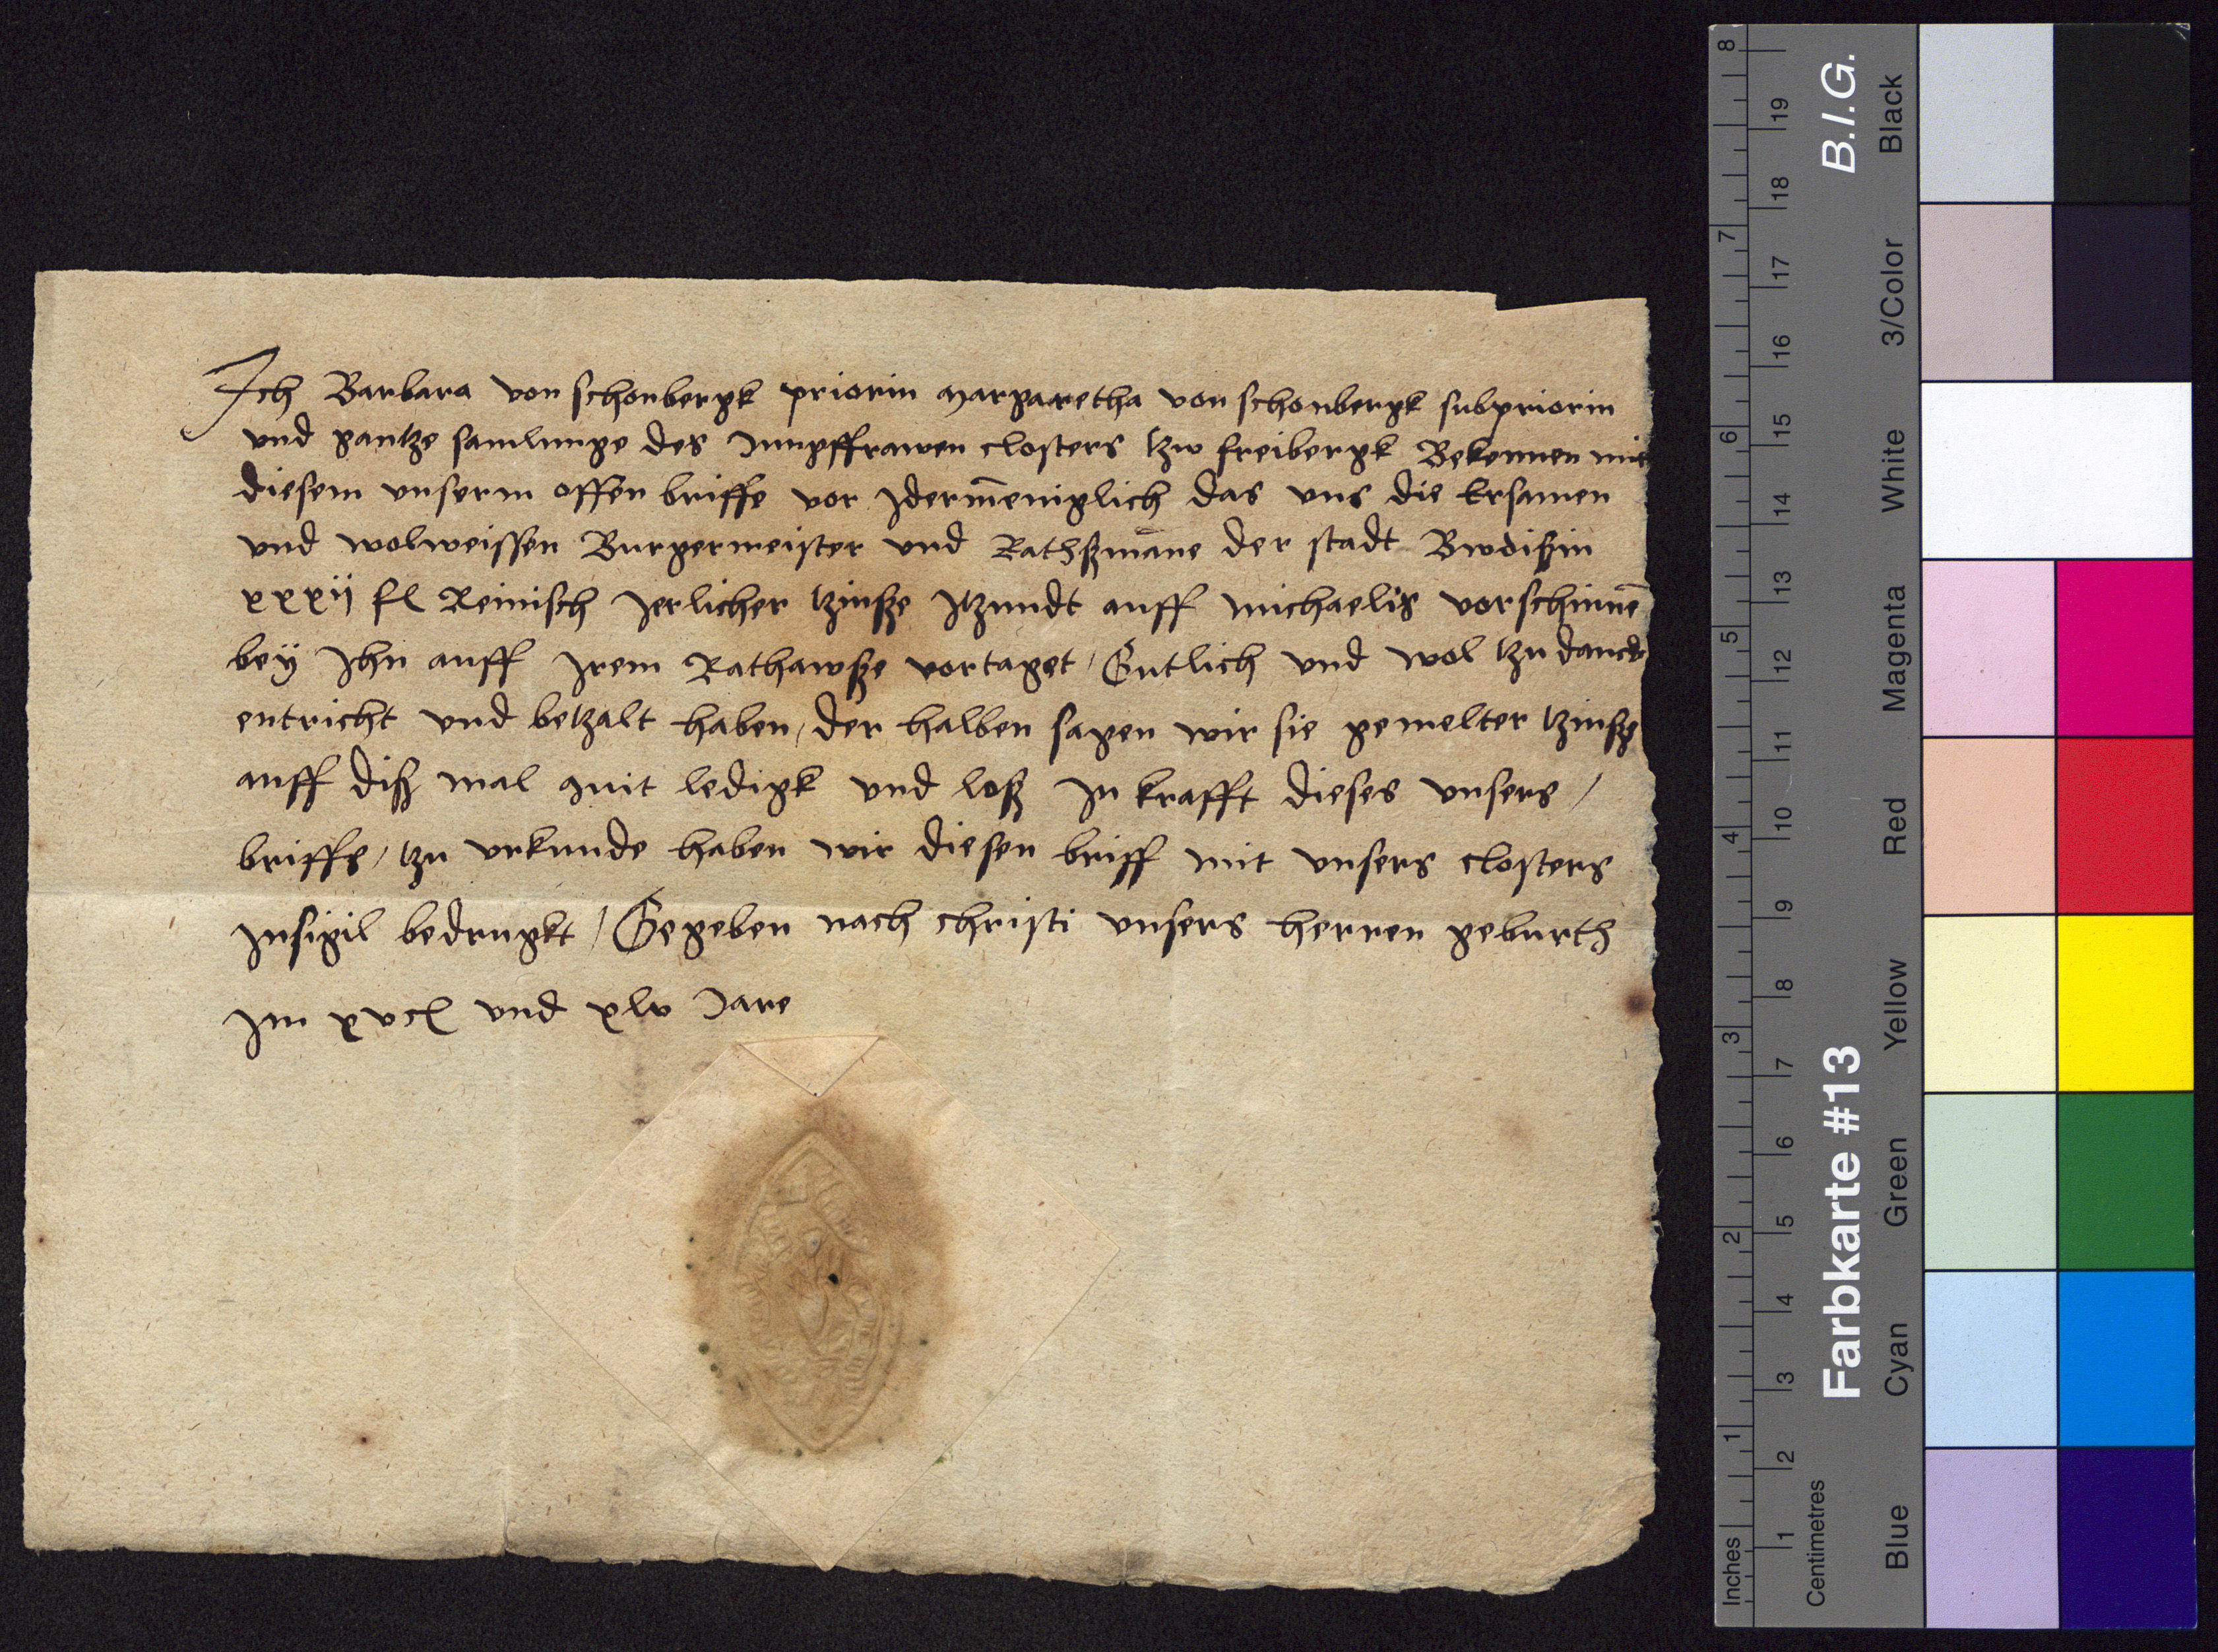 Ich Barbara von schonbergk priorin Margaretha von schonbergk subpriorin
vnd gantze samlunge des Jungffrawen closters tzw freibergk Bekennen mit
diesem vnserm offen briffe vor Idermēniglich das vns die Ersamen
vnd wolweissen Burgermeister vnd Rathßmāne der stadt Bwdißin
xxxij fl Reinisch Jerlicher tzinße Itzundt auff michaelis vorschinnē
bey Ihn auff Irem Rathawße vortaget / Gutlich vnd wol tzu danck
entricht vnd betzalt haben / der halben sagen wir sie gemelter tzinße
auff diß mal quit ledigk vnd loß In krafft dieses vnsers /
briffs / tzu vrkunde haben wir diesen briff mit vnsers closters
Insigil bedrugkt / Gegeben nach christi vnsers herren geburth
Im xvc vnd xlv Jare
B.I.G.
Farbkarte #13
Blue Cyan Green Yellow Red Magenta White 3/Color Black
Inches 1 2 3 4 5 6 7 8
Centimetres 1 2 3 4 5 6 7 8 9 10 11 12 13 14 15 16 17 18 19